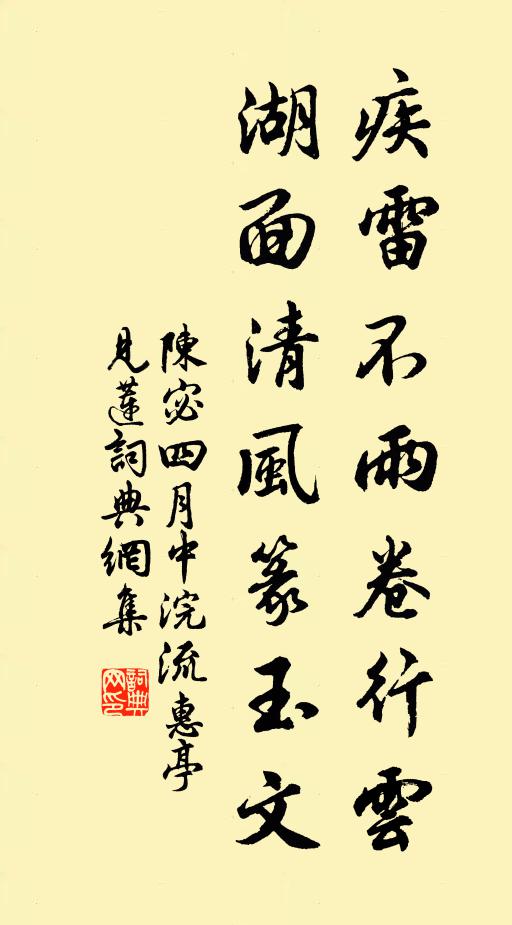 疾雷不雨卷行雲
湖面清風篆玉文
陳宓四月中浣流惠亭
見蓮詞典網集
詞典網印